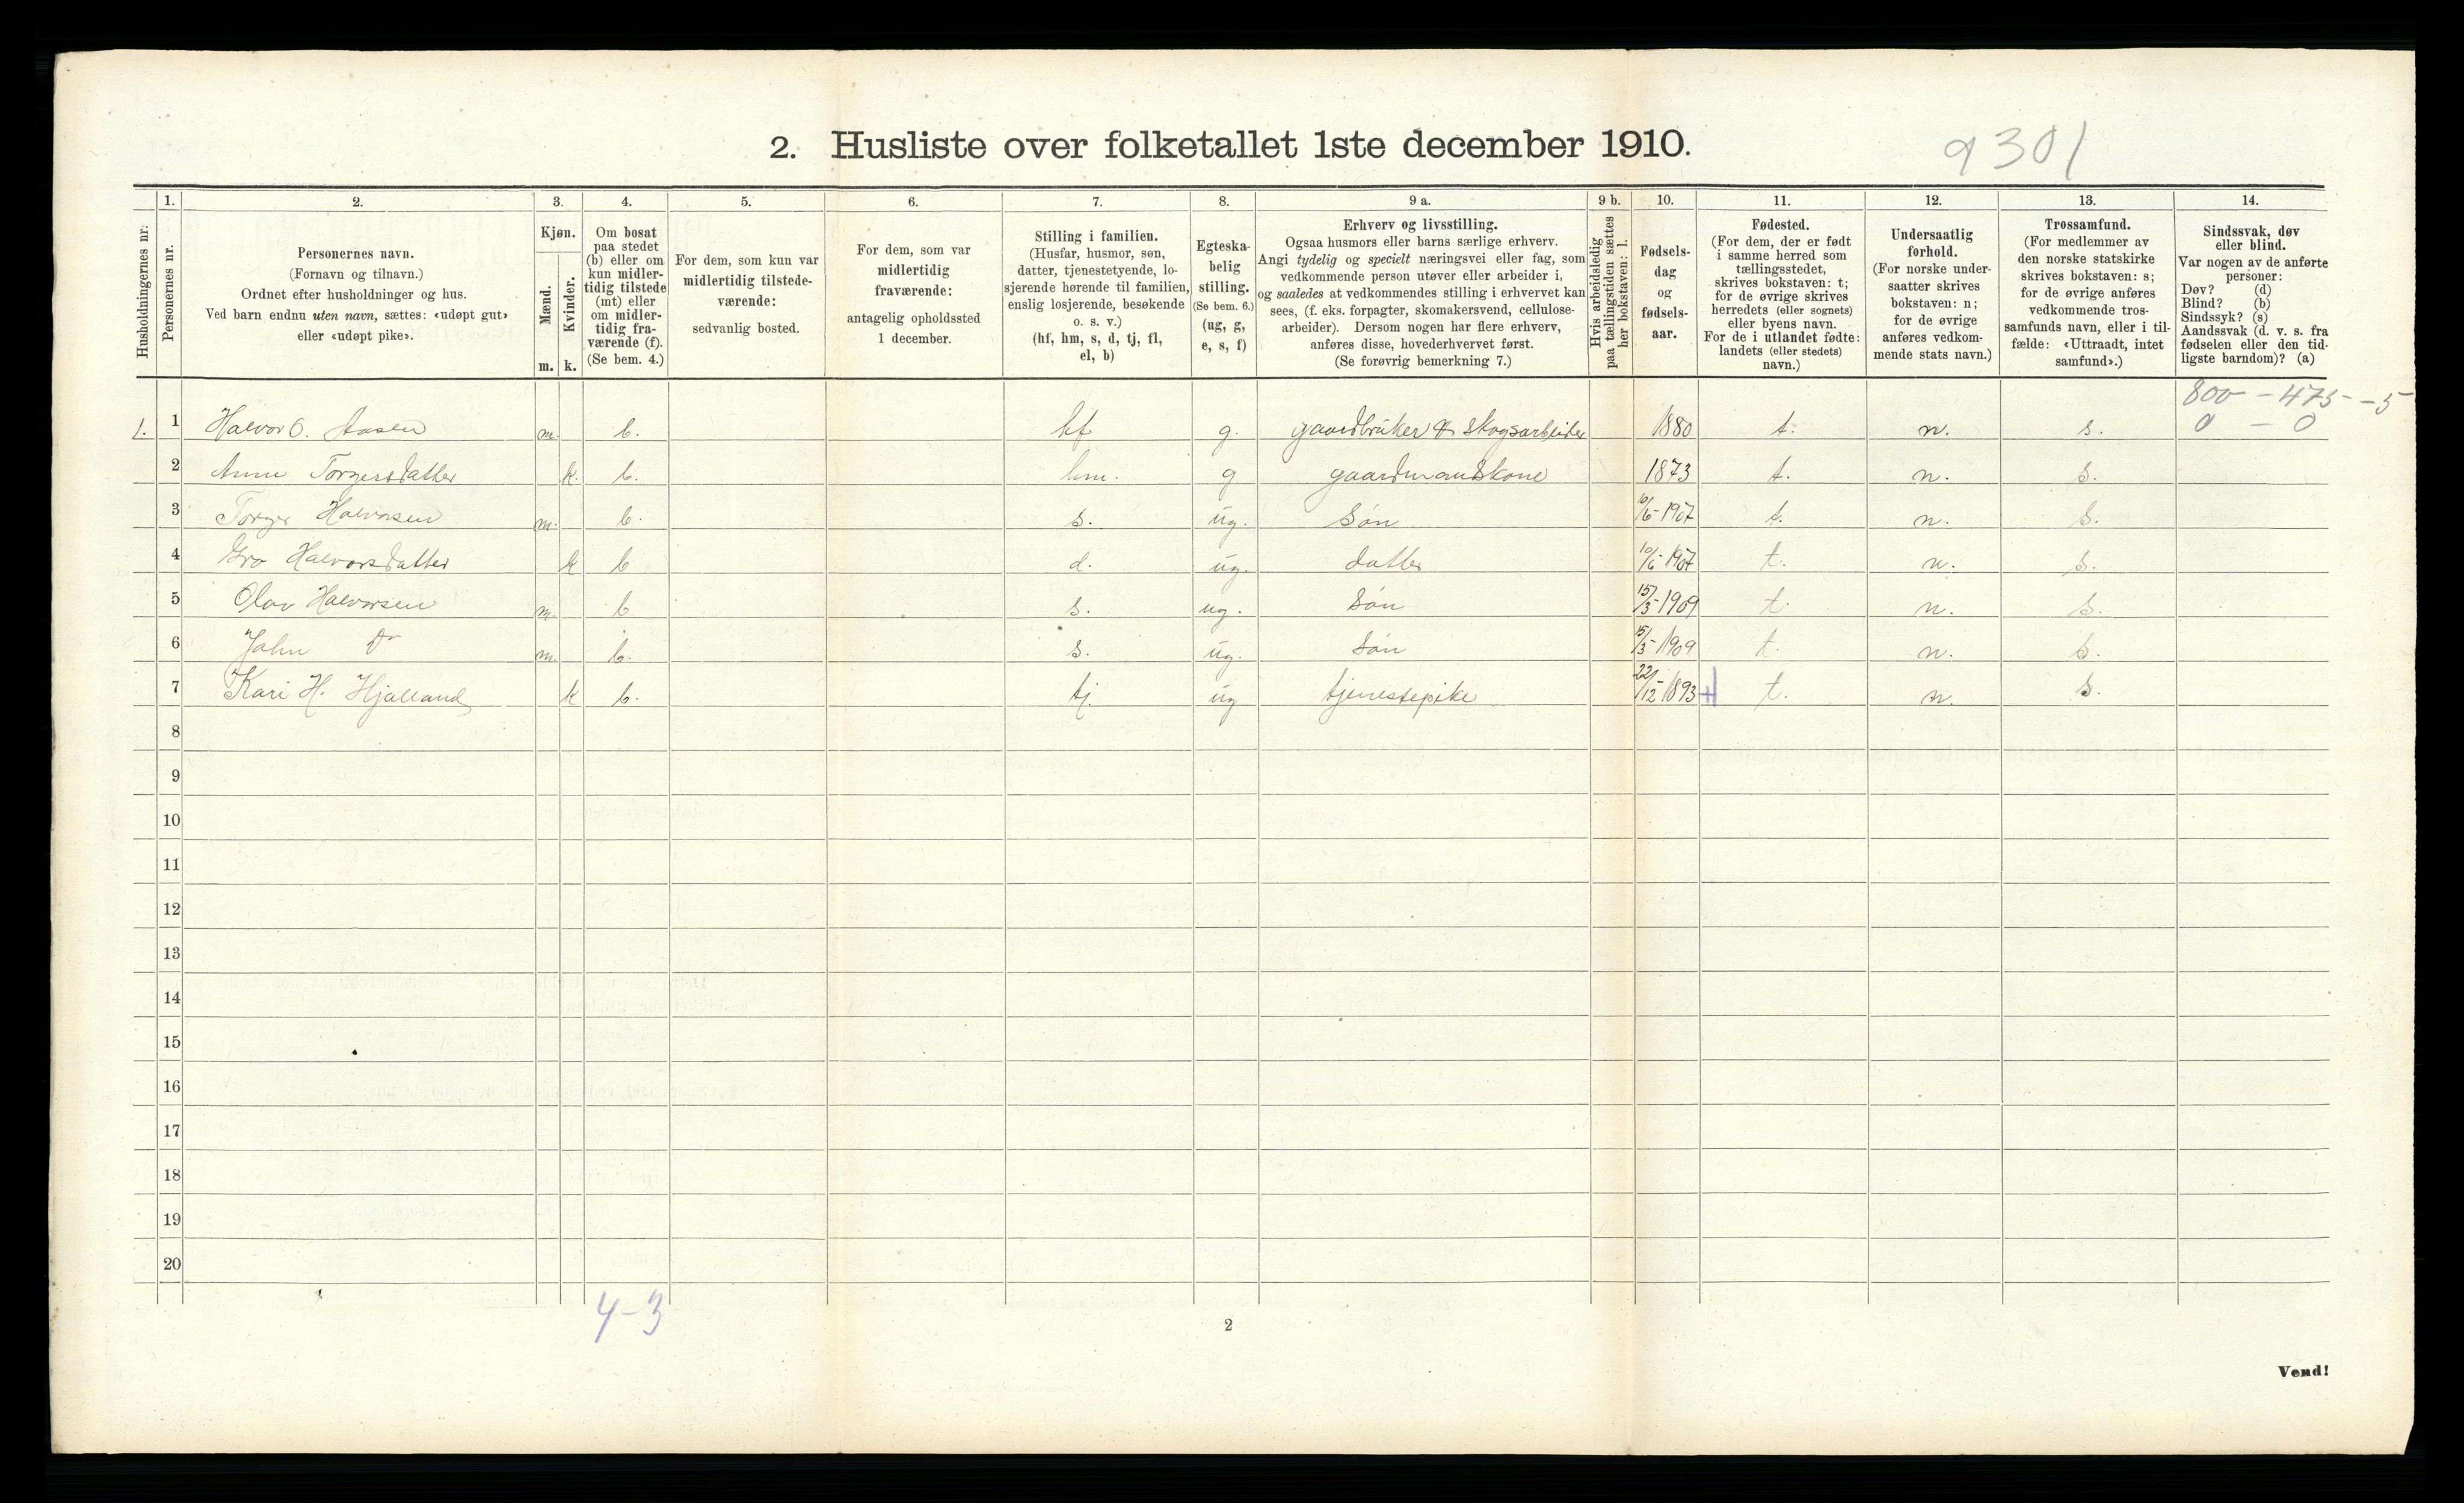 2. Husliste over folketallet 1ste december 1910.
9301
1. 2. 3. 4. 5. 6. 7. 8. 9 a. 9 b. 10. 11. 12. 13. 14.
Husholdningernes nr.
Personernes nr.
Personernes navn.
(Fornavn og tilnavn.)
Ordnet efter husholdninger og hus.
Ved barn endnu uten navn, sættes: «udøpt gut»
eller «udøpt pike».
Kjøn.
Mænd.
Kvinder.
m. k.
Om bosat
paa stedet
(b) eller om
kun midler-
tidig tilstede
(mt) eller
om midler-
tidig fra-
værende (f).
(Se bem. 4.)
For dem, som kun var
midlertidig tilstede-
værende:
sedvanlig bosted.
For dem, som var
midlertidig
fraværende:
antagelig opholdssted
1 december.
Stilling i familien.
(Husfar, husmor, søn,
datter, tjenestetyende, lo-
sjerende hørende til familien,
enslig losjerende, besøkende
o. s. v.)
(hf, hm, s, d, tj, fl,
el, b)
Egteska-
belig
stilling.
(Se bem. 6.)
(ug, g,
e, s, f)
Erhverv og livsstilling.
Ogsaa husmors eller barns særlige erhverv.
Angi tydelig og specielt næringsvei eller fag, som
vedkommende person utøver eller arbeider i,
og saaledes at vedkommendes stilling i erhvervet kan
sees, (f. eks. forpagter, skomakersvend, cellulose-
arbeider). Dersom nogen har flere erhverv,
anføres disse, hovederhvervet først.
(Se forøvrig bemerkning 7.)
Hvis arbeidsledig
paa tællingstiden sættes
her bokstaven: l.
Fødsels-
dag
og
fødsels-
aar.
Fødested.
(For dem, der er født
i samme herred som
tællingsstedet,
skrives bokstaven: t;
for de øvrige skrives
herredets (eller sognets)
eller byens navn.
For de i utlandet fødte:
landets (eller stedets)
navn.)
Undersaatlig
forhold.
(For norske under-
saatter skrives
bokstaven: n;
for de øvrige
anføres vedkom-
mende stats navn.)
Trossamfund.
(For medlemmer av
den norske statskirke
skrives bokstaven: s;
for de øvrige anføres
vedkommende tros-
samfunds navn, eller i til-
fælde: «Uttraadt, intet
samfund».)
Sindssvak, døv
eller blind.
Var nogen av de anførte
personer:
Døv? (d)
Blind? (b)
Sindssyk? (s)
Aandssvak (d. v. s. fra
fødselen eller den tid-
ligste barndom)? (a)
800 - 475 - 5
0 - 0
1. 1 Halvor O. Aasen m. b. hf g. gaardbruker & skogsarbeider 1880 t. n. s.
2 Anne Torgersdatter k. b. hm. g gaardmanskone 1873 t. n. s.
3 Torger Halvorsen m. b. s. ug. søn 10/6-1907 t. n. s.
4 Gro Halvorsdatter k b d. ug. datter 10/6-1907 t. n. s.
5 Olav Halvorsen m. b s. ug. søn 15/3-1909 t. n. s.
6 John Do m. b. s. ug. søn 15/3-1909 t. n. s.
7 Kari H. Hjalland k b. tj. ug tjenestepike 22/12-1893 t. n. s.
8
9
10
11
12
13
14
15
16
17
18
19
20
4-3
2
Vend!